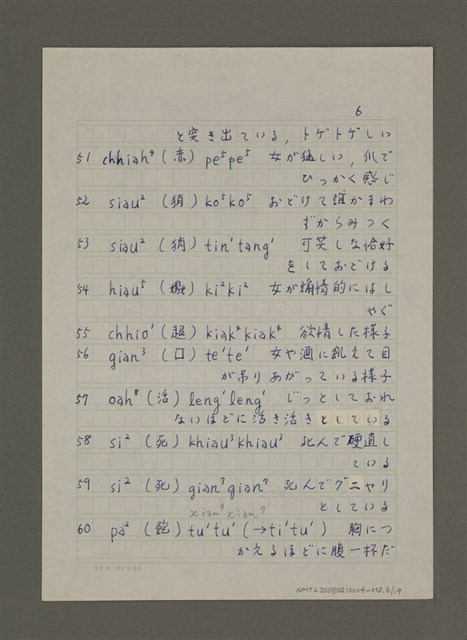 6
と突き出ている, トゲトゲしい
51 chhiah⁴ (赤) pe⁵pe⁵ 女が猛しい, 爪で
ひっかく感じ
52 siau² (猶) ko⁵ko⁵ おどけて誰かまわ
ずからみつく
53 siau² (猶) tin¹tang¹ 可笑しな恰好
をしておどける
54 hiau⁵ (嬈) ki²ki² 女が煽情的にはし
ゃぐ
55 chhio¹ (超) kiak⁴kiak⁴ 欲情した様子
56 gian³ (口) te¹te¹ 女や酒に飢えて目
が吊りあがっている様子
57 oah⁸ (活) leng¹leng¹ じっとしておれ
ないほどに活き活きとしている
58 si² (死) khiau³khiau³ 死んで硬直し
ている
59 si² (死) gian⁷gian⁷ 死んでグニャリ
xian⁷xian⁷ としている
60 pa² (飽) tu¹tu¹ (→ti¹tu¹) 胸につ
かえるほどに腹一杯だ